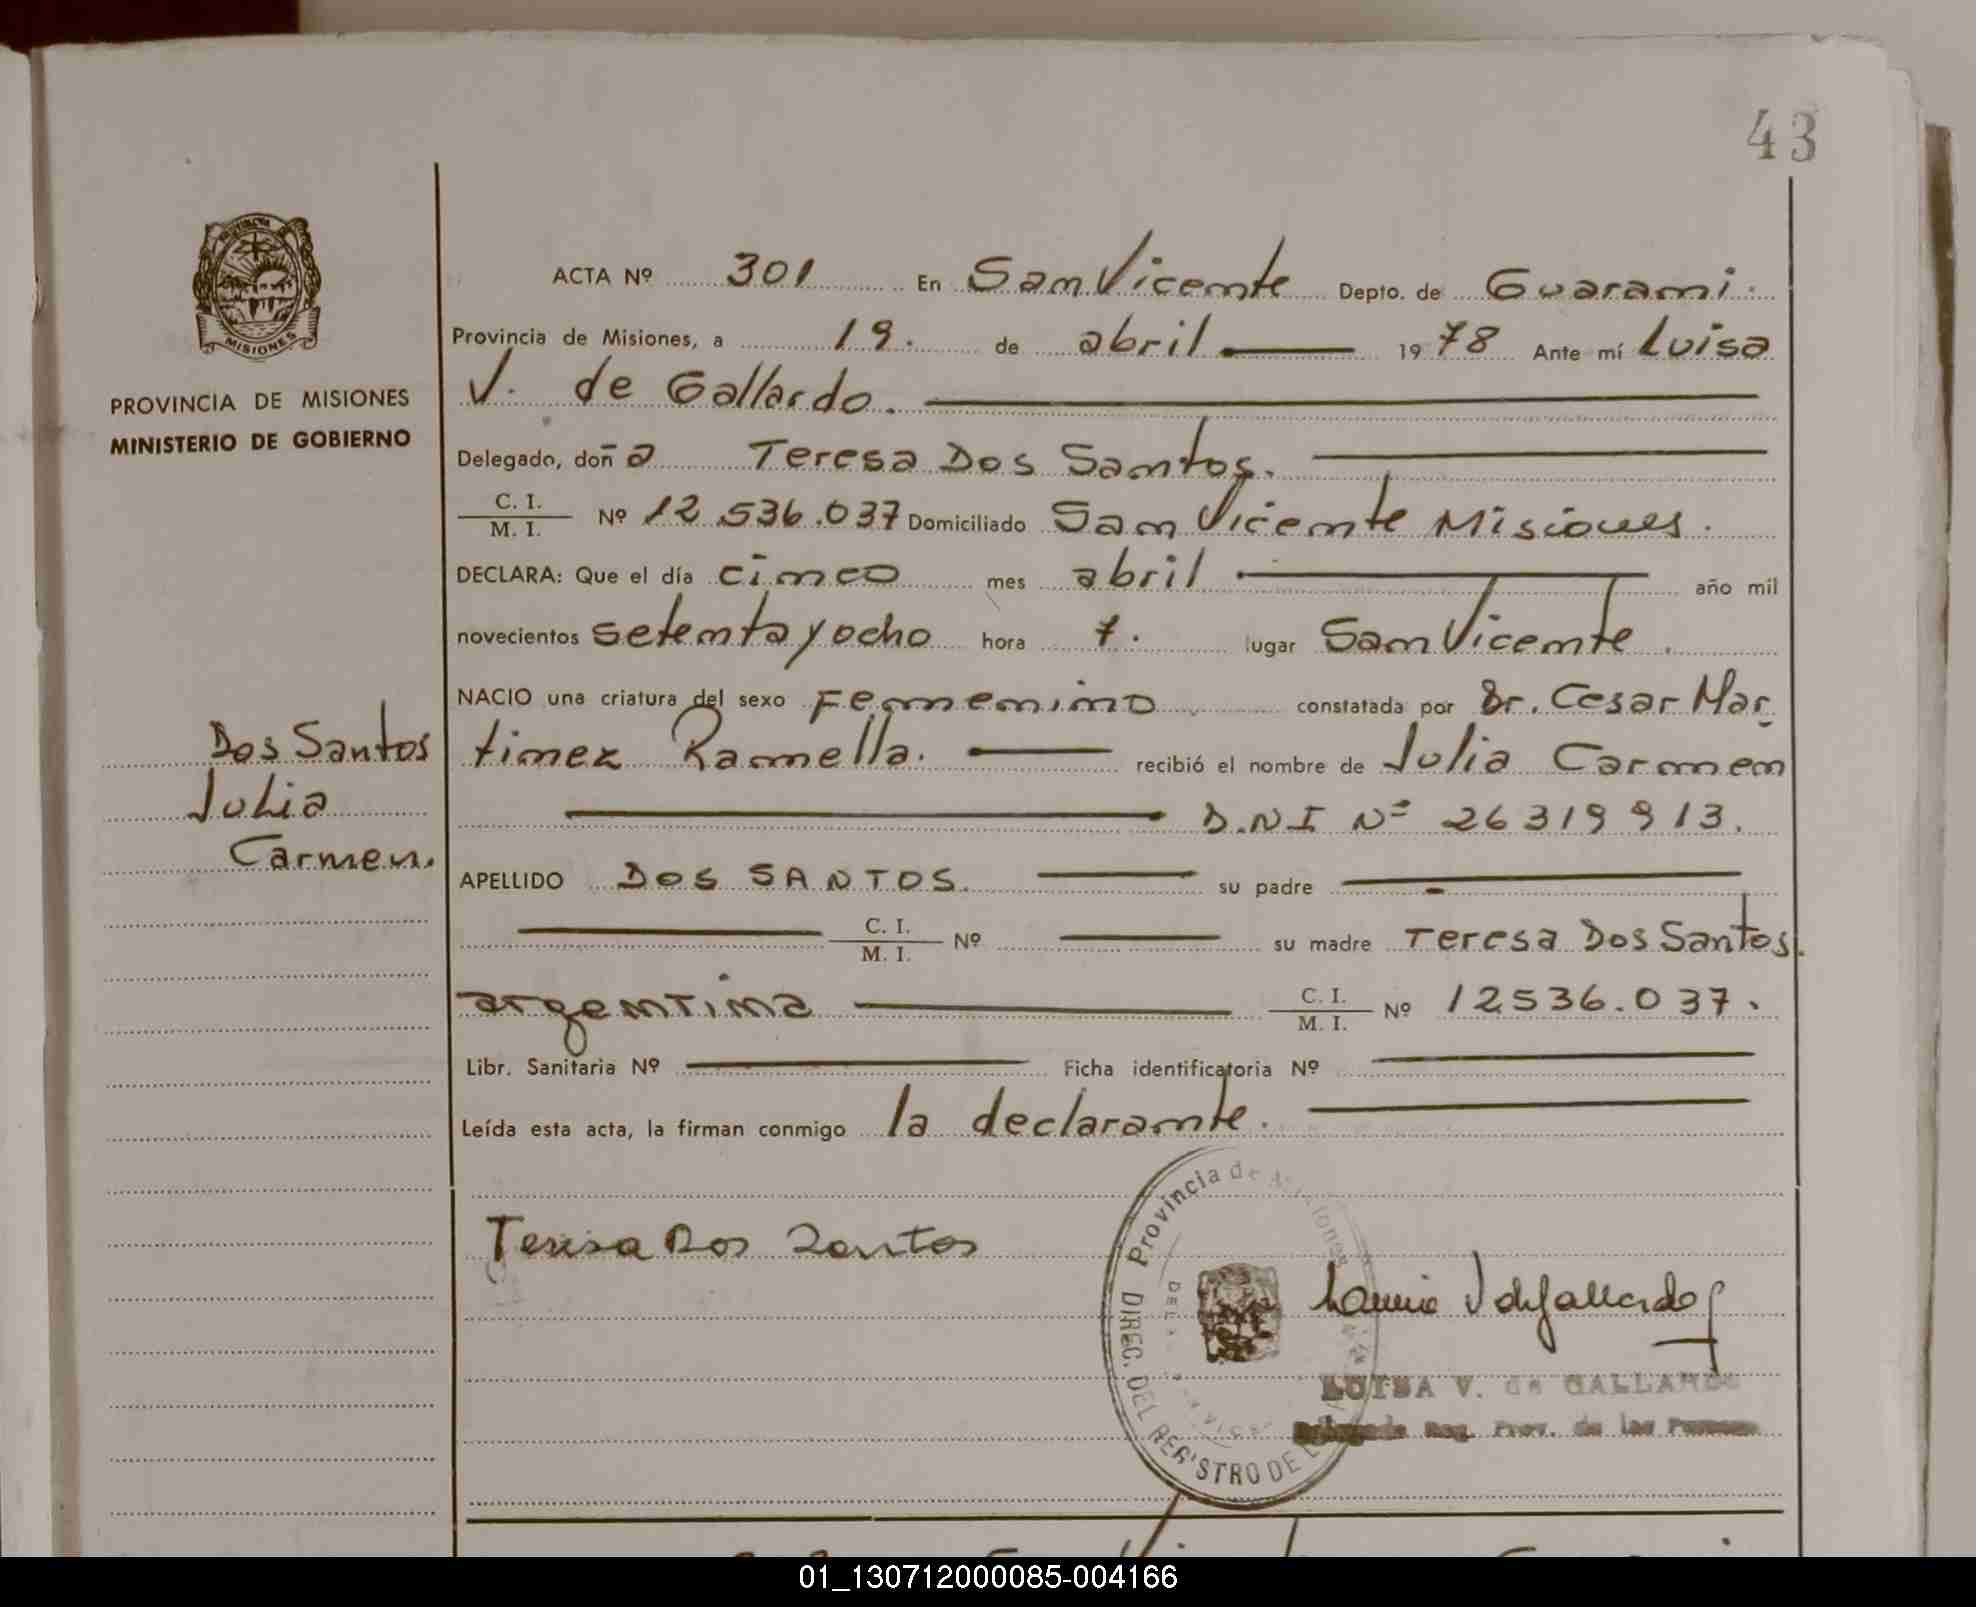 43
MISIONES
PROVINCIA DE MISIONES
MINISTERIO DE GOBIERNO
Dos Santos
Julia
Carmen.
ACTA Nº 301 En San Vicente Depto. de Guarani.
Provincia de Misiones, a 19. de abril 1978 Ante mí Luisa
V. de Gallardo.
Delegado, doña Teresa Dos Santos.
C. I. / M. I. Nº 12.536.037 Domiciliado San Vicente Misiones.
DECLARA: Que el día cinco mes abril año mil
novecientos setenta y ocho hora 7. lugar San Vicente.
NACIO una criatura del sexo Femenino constatada por Dr. Cesar Mar
tinez Ramella. recibió el nombre de Julia Carmen
D.N.I Nº 26319913.
APELLIDO DOS SANTOS. su padre
C. I. / M. I. Nº su madre Teresa Dos Santos.
argentina C. I. / M. I. Nº 12536.037.
Libr. Sanitaria Nº Ficha identificatoria Nº
Leída esta acta, la firman conmigo la declarante.
Teresa Dos Santos
Provincia de Misiones
DIREC. DEL REGISTRO DE
LUISA V. de GALLARDO
Reg. Prov. de las
01_130712000085-004166